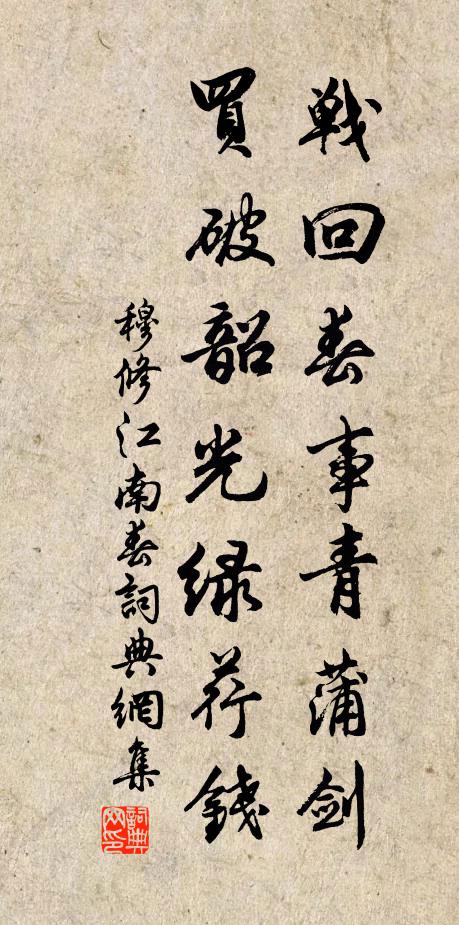 戰回春事青蒲劍
買破韶光綠荇錢
穆修江南春詞典網集
詞典网印